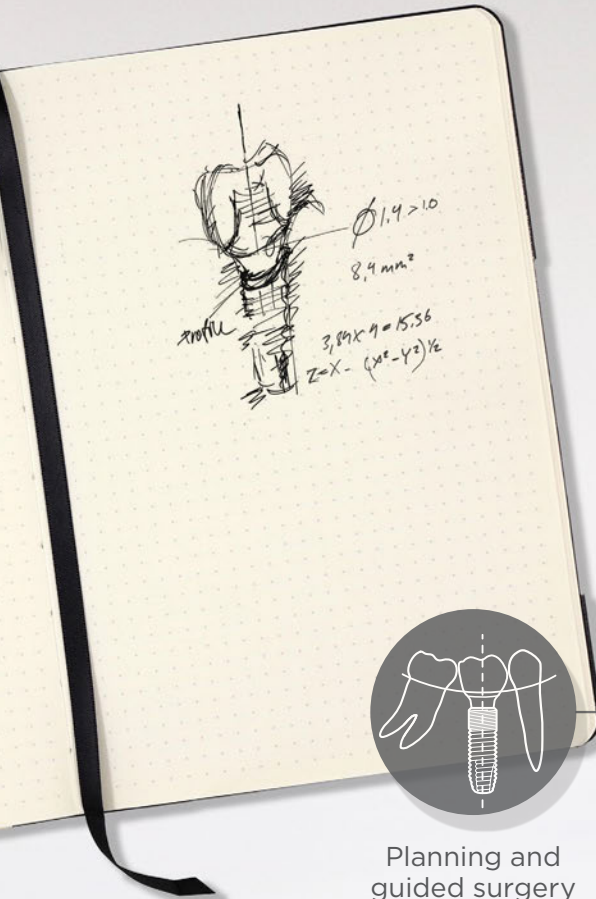 Ø 1.4 > 1.0
8,4 mm²
profile
3,84 x 4 = 15.36
Z = X - (X² - Y²)½
Planning and
guided surgery